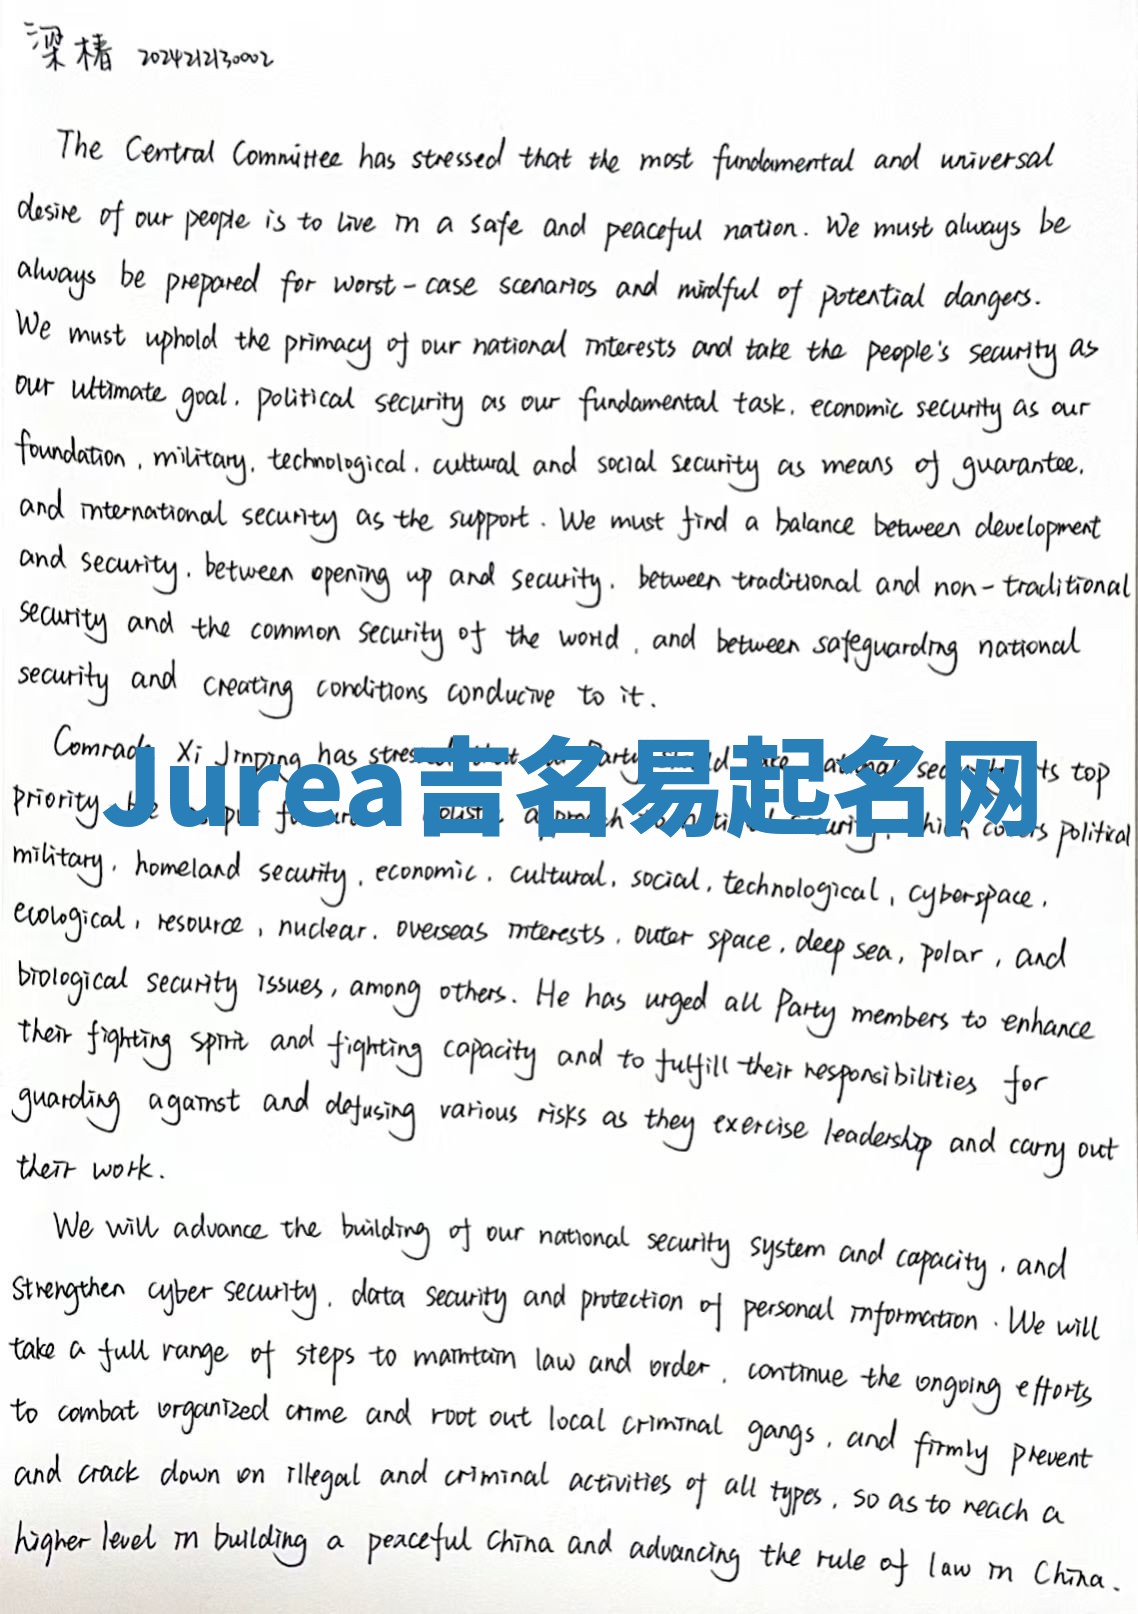 梁椿 2024212130002
The Central Committee has stressed that the most fundamental and universal
desire of our people is to live in a safe and peaceful nation. We must always be
always be prepared for worst-case scenarios and mindful of potential dangers.
We must uphold the primacy of our national interests and take the people's security as
our ultimate goal, political security as our fundamental task, economic security as our
foundation, military, technological, cultural and social security as means of guarantee,
and international security as the support. We must find a balance between development
and security, between opening up and security, between traditional and non-traditional
security and the common security of the world, and between safeguarding national
security and creating conditions conducive to it.
Comrade Xi Jinping has stressed that Party national security its top
Jurea吉名易起名网
priority approach security, which covers political
military, homeland security, economic, cultural, social, technological, cyberspace,
ecological, resource, nuclear, overseas interests, outer space, deep sea, polar, and
biological security issues, among others. He has urged all Party members to enhance
their fighting spirit and fighting capacity and to fulfill their responsibilities for
guarding against and defusing various risks as they exercise leadership and carry out
their work.
We will advance the building of our national security system and capacity, and
strengthen cyber security, data security and protection of personal information. We will
take a full range of steps to maintain law and order, continue the ongoing efforts
to combat organized crime and root out local criminal gangs, and firmly prevent
and crack down on illegal and criminal activities of all types, so as to reach a
higher level in building a peaceful China and advancing the rule of law in China.